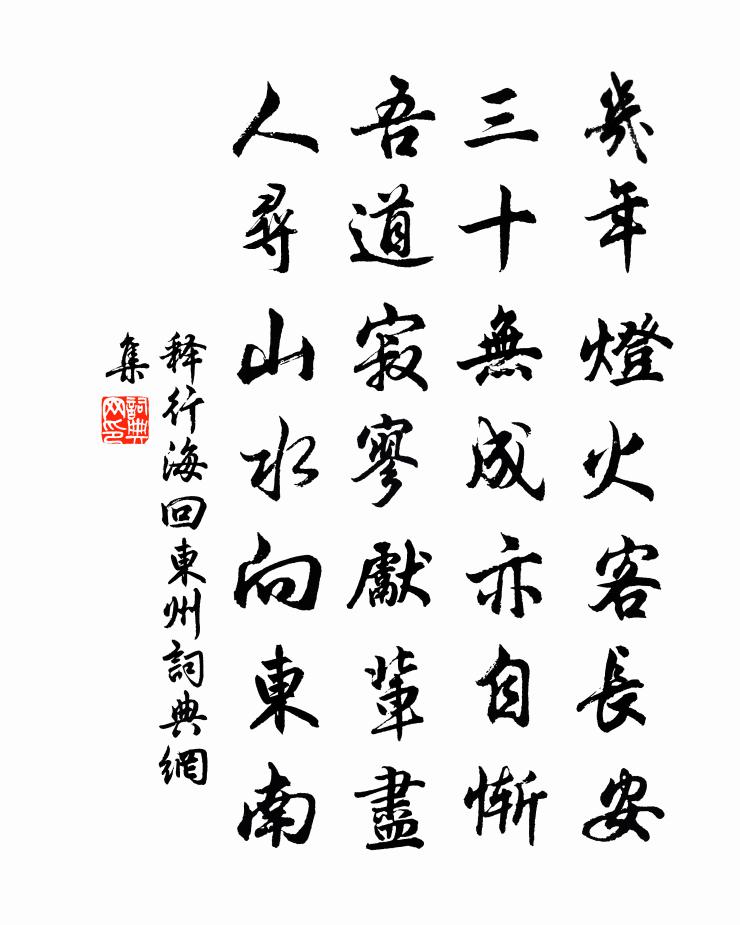 幾年燈火客長安
三十無成亦自慚
吾道寂寥獻輩盡
人尋山水向東南
释行海回東州詞典網
集
詞典网印